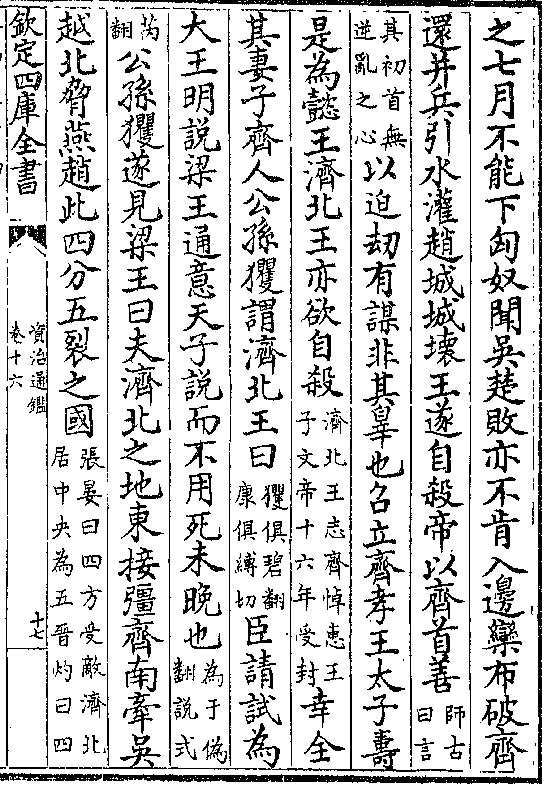 之七月不能下匈奴聞吳楚敗亦不肯入邊欒布破齊
還并兵引水灌趙城城壞王遂自殺帝以齊首善師古曰言
其初首無逆亂之心以迫劫有謀非其辠也召立齊孝王太子壽
是為懿王濟北王亦欲自殺濟北王志齊悼惠王子文帝十六年受封幸全
其妻子齊人公孫玃謂濟北王曰玃俱碧翻康俱縛切臣請試為
大王明說梁王通意天子說而不用死未晚也為于偽翻說式
芮翻公孫玃遂見梁王曰夫濟北之地東接彊齊南牽吳
越北脅燕趙此四分五裂之國張晏曰四方受敵濟北居中央為五晉灼曰四
欽定四庫全書
資治通鑑
卷十六
十七